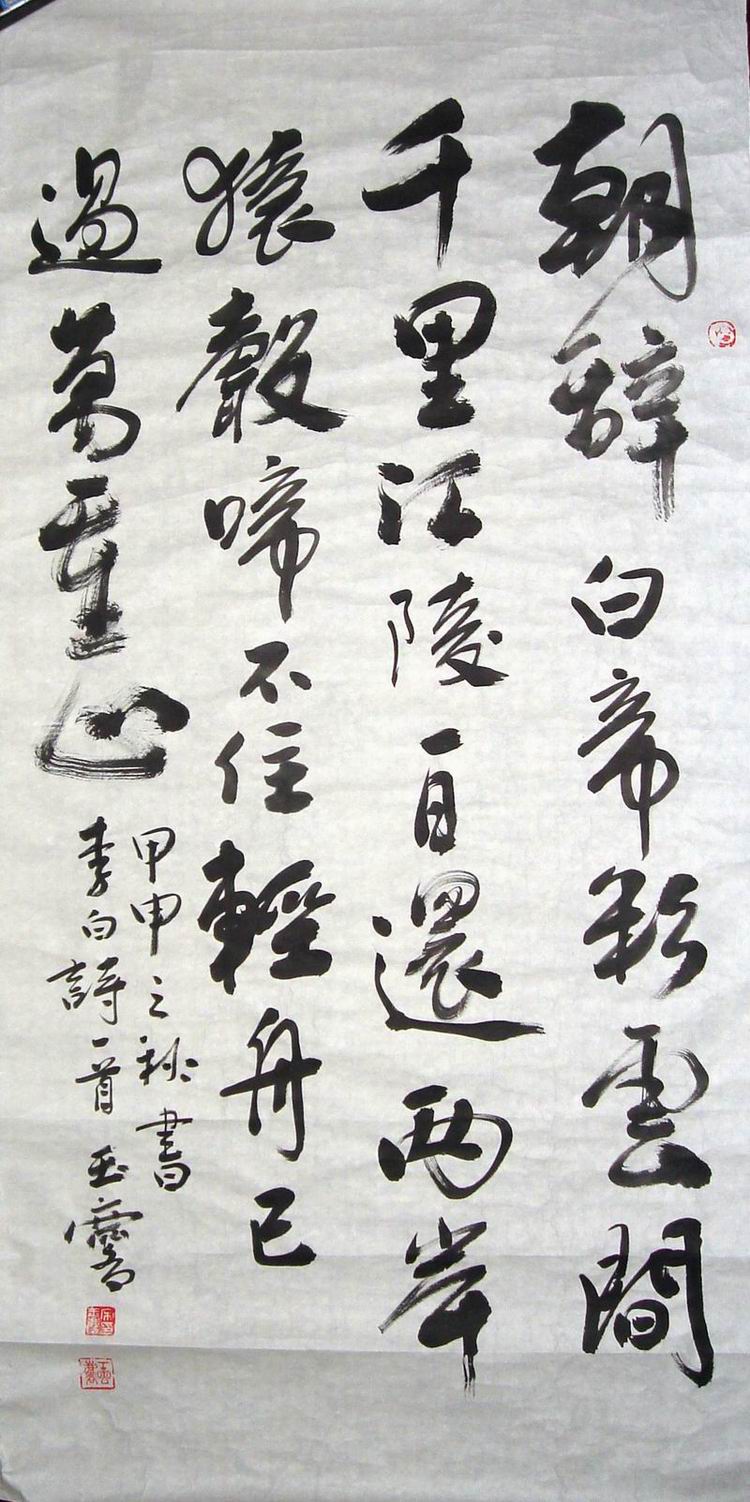 朝辭白帝彩雲間
千里江陵一日還兩岸
猿聲啼不住輕舟已
過萬重山
甲申之秋書
李白詩一首玉